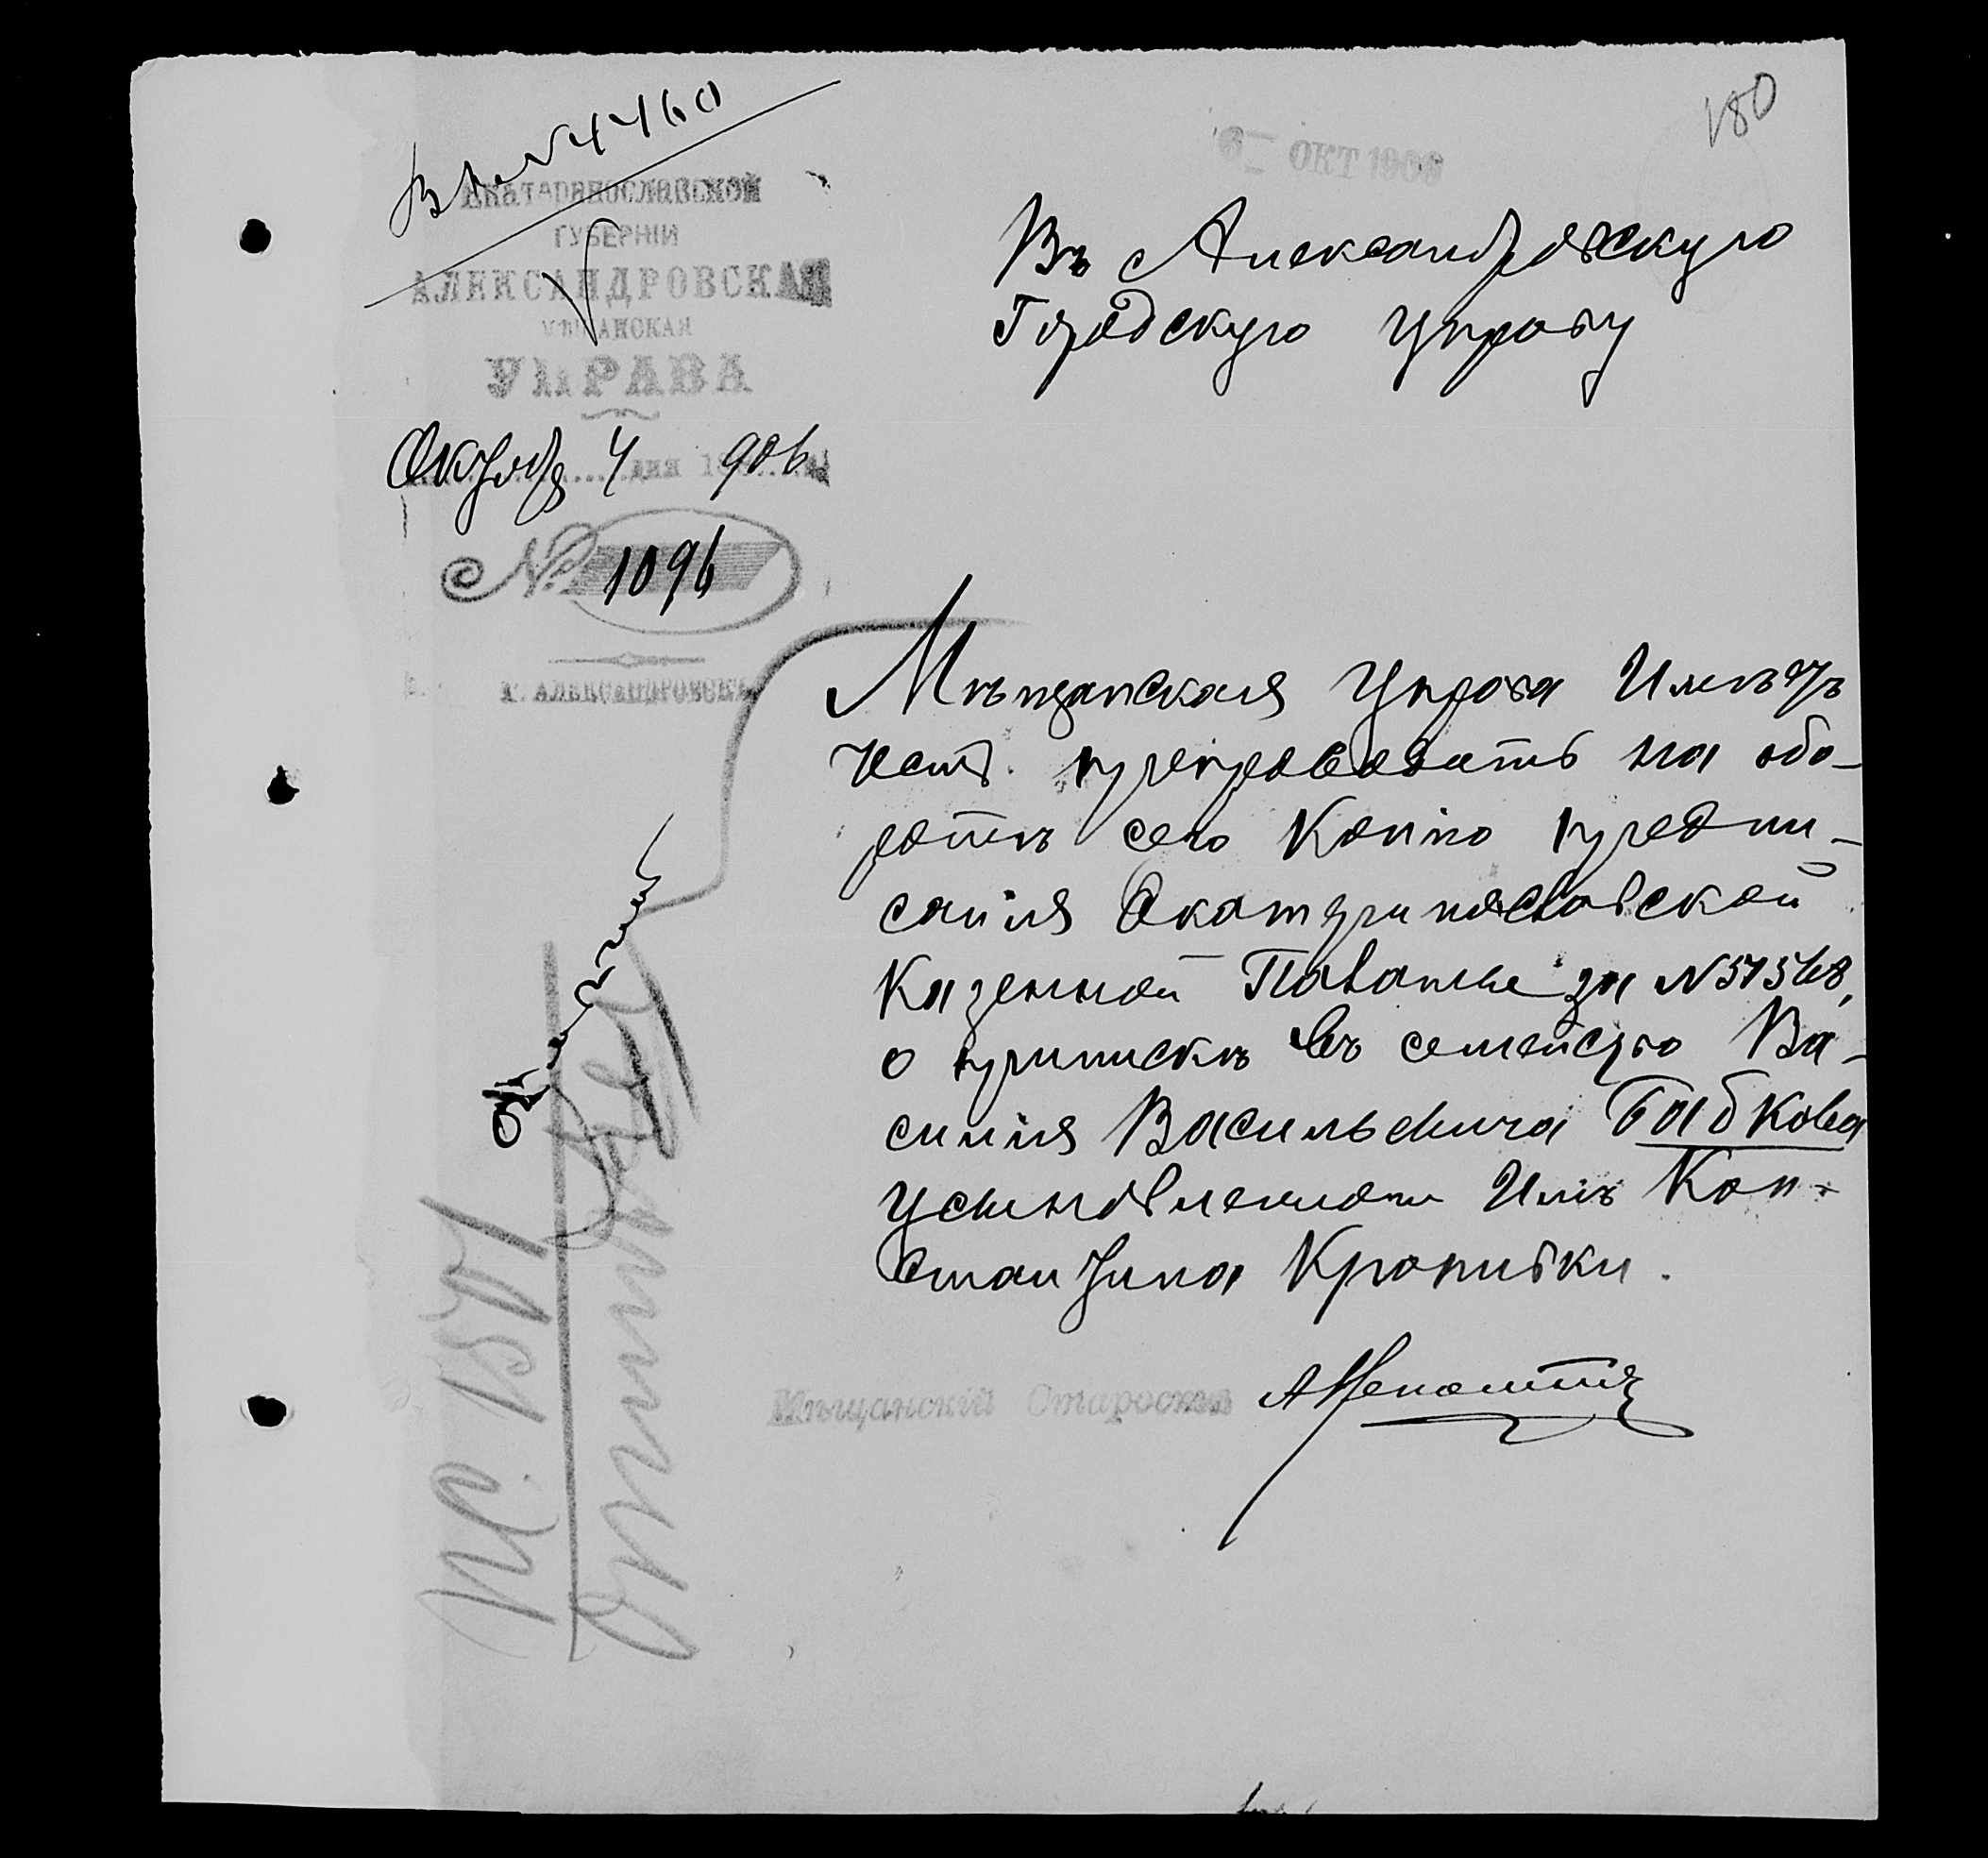 180
6 ОКТ 1906
Вх. № 4460
ЕКАТЕРИНОСЛАВСКОЙ
ГУБЕРНІИ
АЛЕКСАНДРОВСКАЯ
МѢЩАНСКАЯ
УПРАВА
Октября 4 дня 1906
№ 1096
г. АЛЕКСАНДРОВСКЪ
Въ Александровскую
Городскую Управу
Мѣщанская Управа Имѣетъ
честь препроводить на обо-
ротѣ сего копію предпи-
санія Екатеринославской
Казенной Палаты за №
о припискѣ въ семейство Ва-
силія Васильевича Бабкова
усыновленнаго Имъ Кон-
стантина Кропивки.
Мѣщанскій Староста